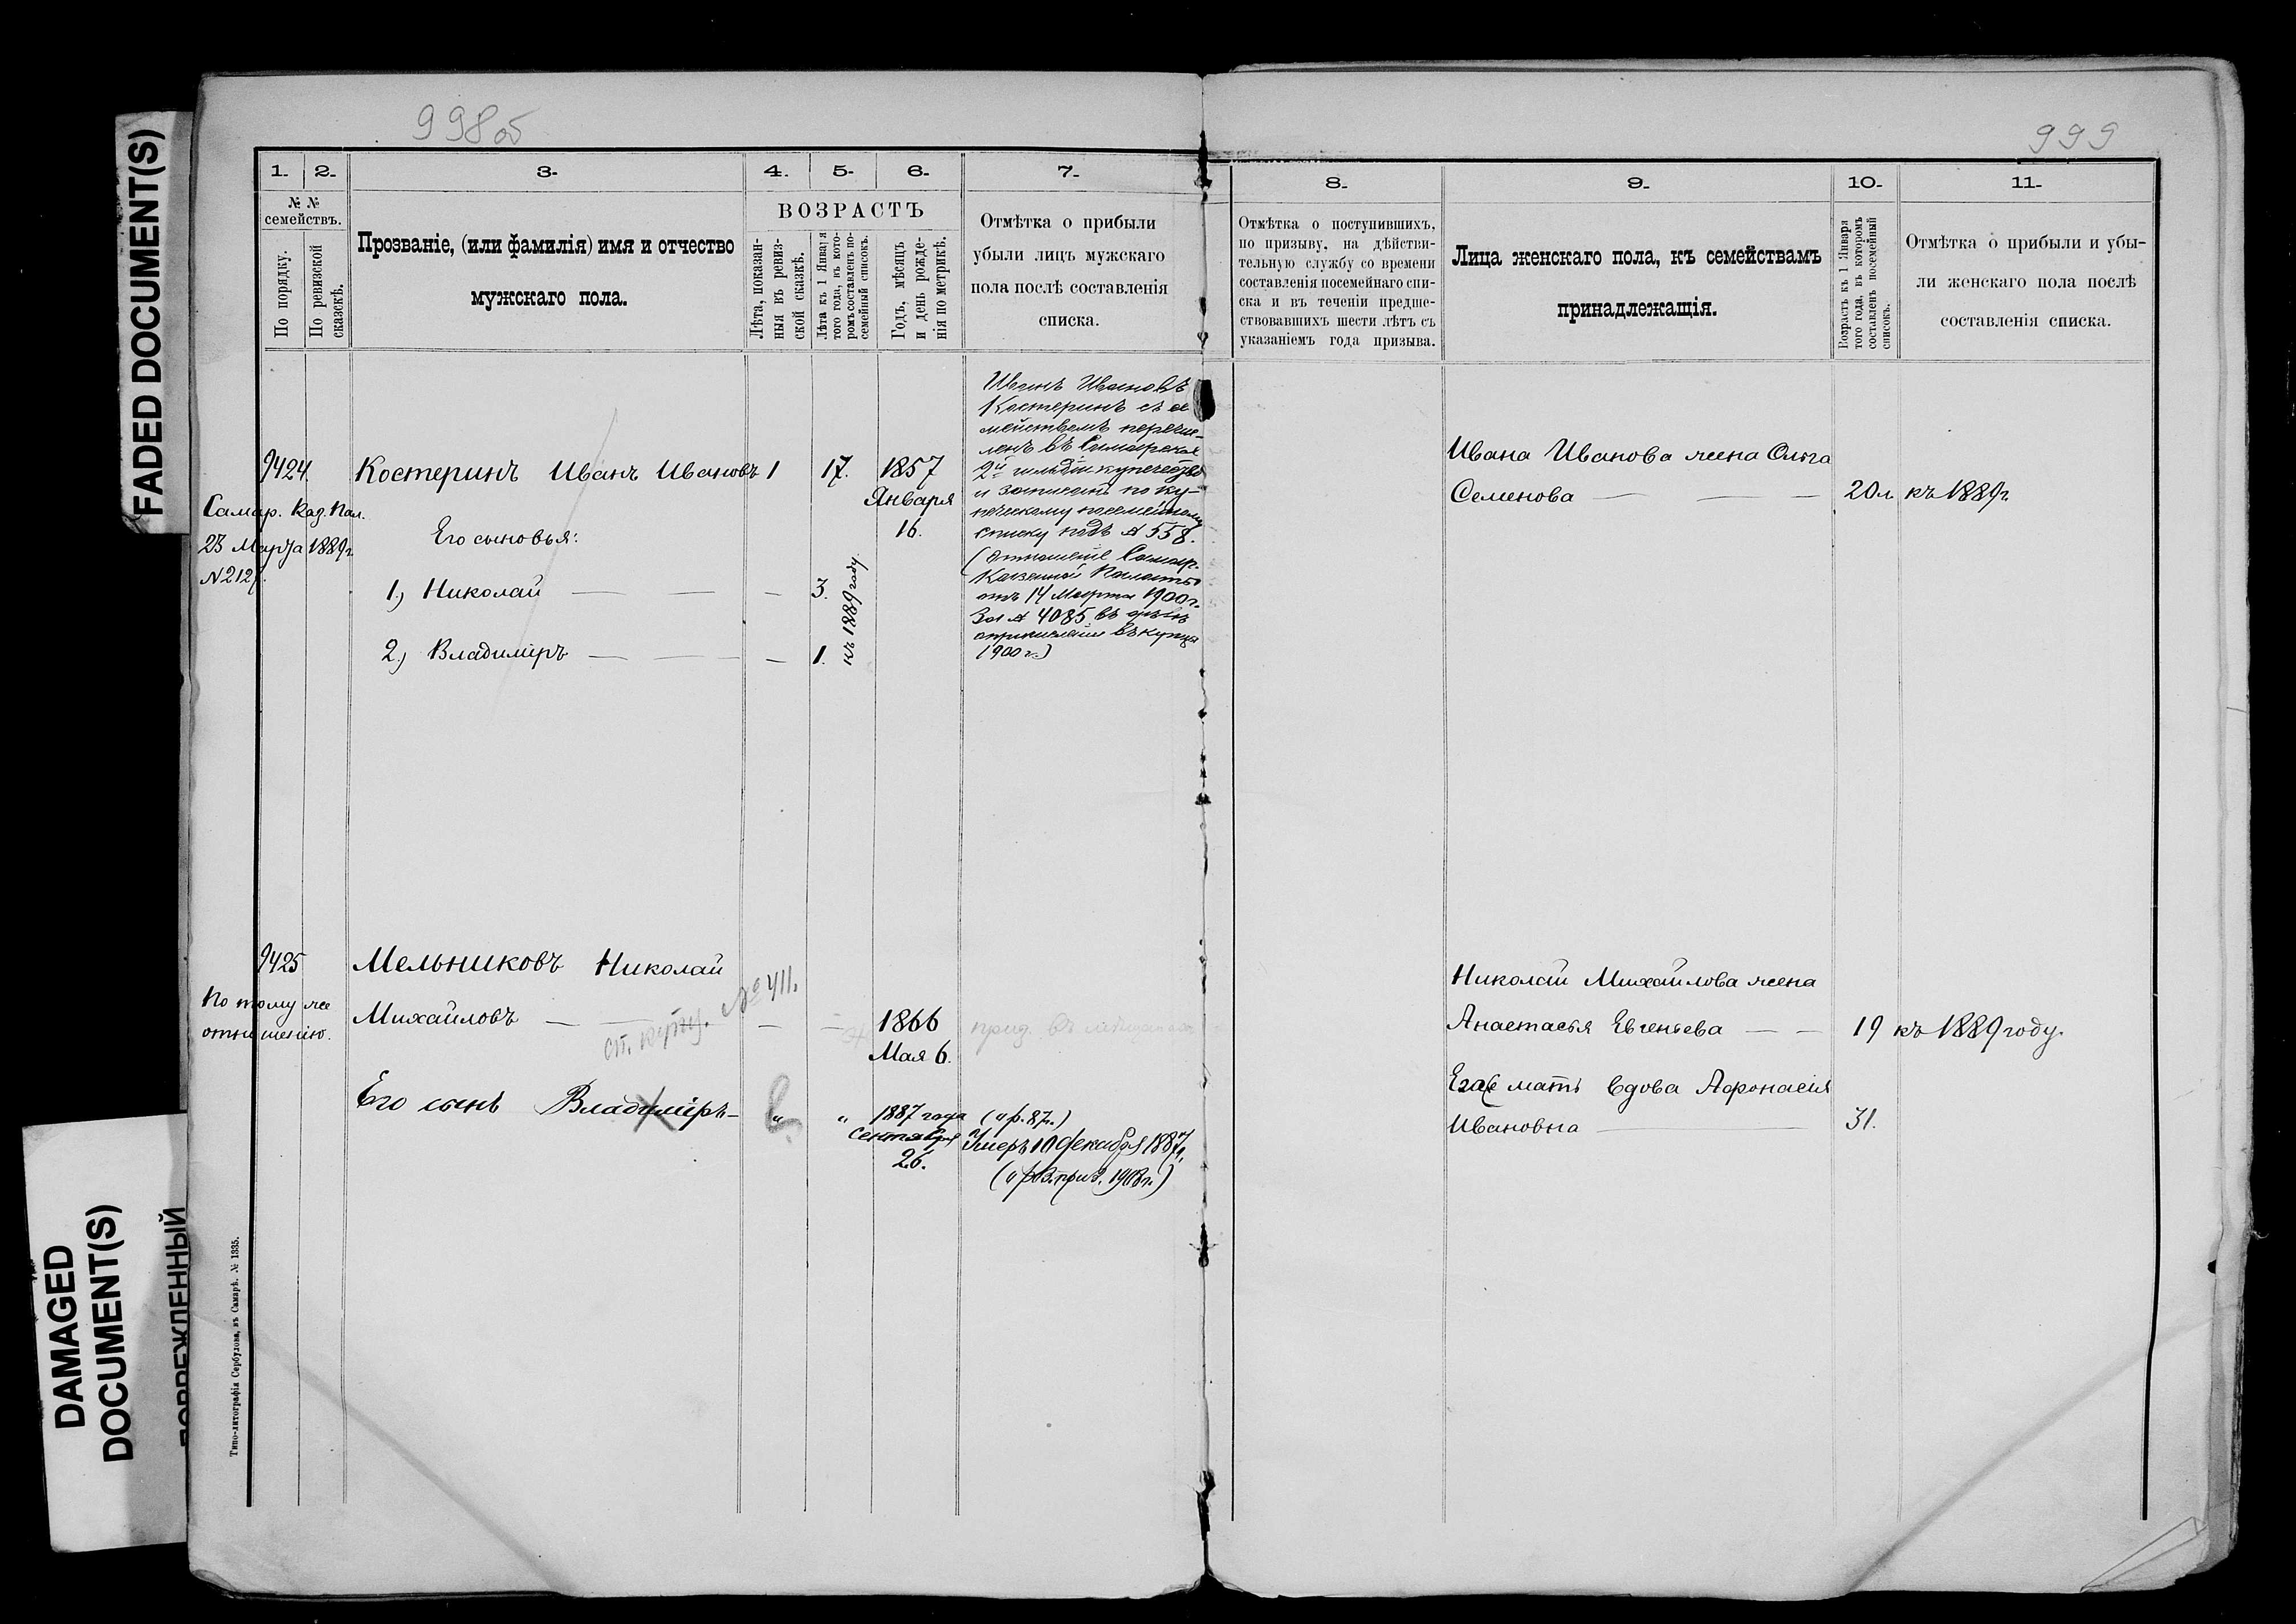 998об
999
FADED DOCUMENT(S)
DAMAGED
DOCUMENT(S)
ПОВРЕЖДЕННЫЙ
1.
2.
3.
4.
5.
6.
7.
8.
9.
10.
11.
№ №
семействъ.
По порядку.
По ревизской
сказкѣ.
Прозваніе, (или фамилія) имя и отчество
мужскаго пола.
ВОЗРАСТЪ
Лѣта, показан-
ныя въ ревиз-
ской сказкѣ.
Лѣта къ 1 Января
того года, въ кото-
ромъ составленъ по-
семейный списокъ.
Годъ, мѣсяцъ
и день рожде-
нія по метрикѣ.
Отмѣтка о прибыли
убыли лицъ мужскаго
пола послѣ составленія
списка.
Отмѣтка о поступившихъ,
по призыву, на дѣйстви-
тельную службу со времени
составленія посемейнаго спи-
ска и въ теченіи предше-
ствовавшихъ шести лѣтъ съ
указаніемъ года призыва.
Лица женскаго пола, къ семействамъ
принадлежащія.
Возрастъ къ 1 Января
того года, въ которомъ
составленъ посемейный
списокъ.
Отмѣтка о прибыли и убы-
ли женскаго пола послѣ
составленія списка.
9424.
Самар. Каз. Пал.
23 Марта 1889г.
Костеринъ Иванъ Ивановъ 1 17. 1857
Января
16.
Его сыновья:
1) Николай — — — — 3.
2) Владиміръ — — — 1.
къ 1889 году
Иванъ Ивановъ
Костеринъ съ се
мействомъ перечис-
ленъ въ Самарское
2й гильдіи купечество
и записанъ по ку-
печескому посемейному
списку подъ № 558.
(Отношеніе Самар.
Казенной Палаты
отъ 14 Марта 1900 г.
За № 4085, въ
1900 г.)
Ивана Иванова жена Ольга
Семенова — — — 20 л къ 1889г.
9425
По тому же
отношенію.
Мельниковъ Николай
Михайловъ — — — — 1866
Мая 6.
№ 411.
Его сынъ Владиміръ — " " 1887 года
Сентября
26.
Умеръ 10 Декабря 1887 г.
Николай Михайлова жена
Анастасья Евгеньева — — 19 къ 1889 году.
Его мать вдова Афонасія
Ивановна — 31.
Типо-литографія Сербулова, въ Самарѣ. № 1335.